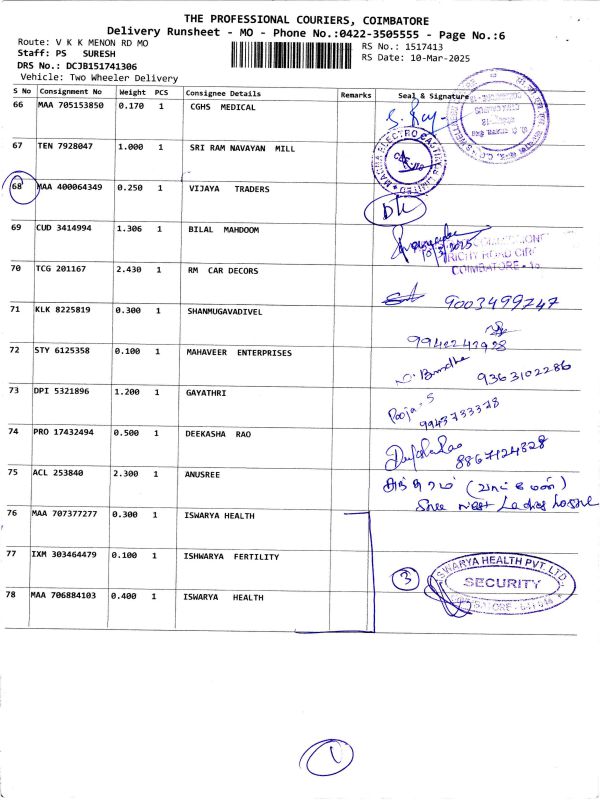 THE PROFESSIONAL COURIERS, COIMBATORE
Delivery Runsheet - MO - Phone No.:0422-3505555 - Page No.:6
Route: V K K MENON RD MO
Staff: PS SURESH
DRS No.: DCJB151741306
Vehicle: Two Wheeler Delivery
RS No.: 1517413
RS Date: 10-Mar-2025
S No Consignment No Weight PCS Consignee Details Remarks Seal & Signature
66 MAA 705153850 0.170 1 CGHS MEDICAL
67 TEN 7928047 1.000 1 SRI RAM NAVAYAN MILL
68 MAA 400064349 0.250 1 VIJAYA TRADERS
69 CUD 3414994 1.306 1 BILAL MAHDOOM
10/3/2025
COIMBATORE
70 TCG 201167 2.430 1 RM CAR DECORS
71 KLK 8225819 0.300 1 SHANMUGAVADIVEL
9003499747
72 STY 6125358 0.100 1 MAHAVEER ENTERPRISES
9942242928
73 DPI 5321896 1.200 1 GAYATHRI
9363102286
Pooja. S
9943733378
74 PRO 17432494 0.500 1 DEEKASHA RAO
8867124328
75 ACL 253840 2.300 1 ANUSREE
Ladies
76 MAA 707377277 0.300 1 ISWARYA HEALTH
77 IXM 303464479 0.100 1 ISHWARYA FERTILITY
3
ISWARYA HEALTH PVT. LTD.
SECURITY
78 MAA 706884103 0.400 1 ISWARYA HEALTH
1